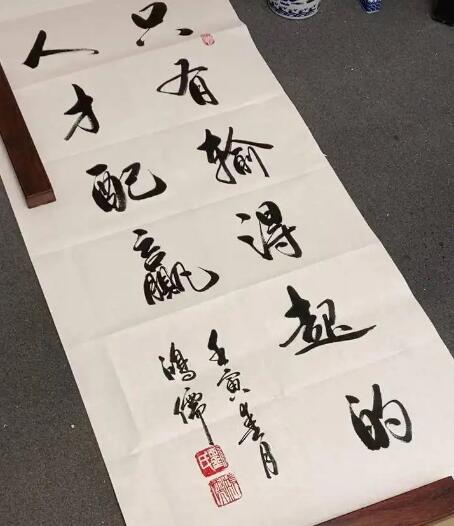 只有输得起的
人才配赢
壬寅春月
鸿儒